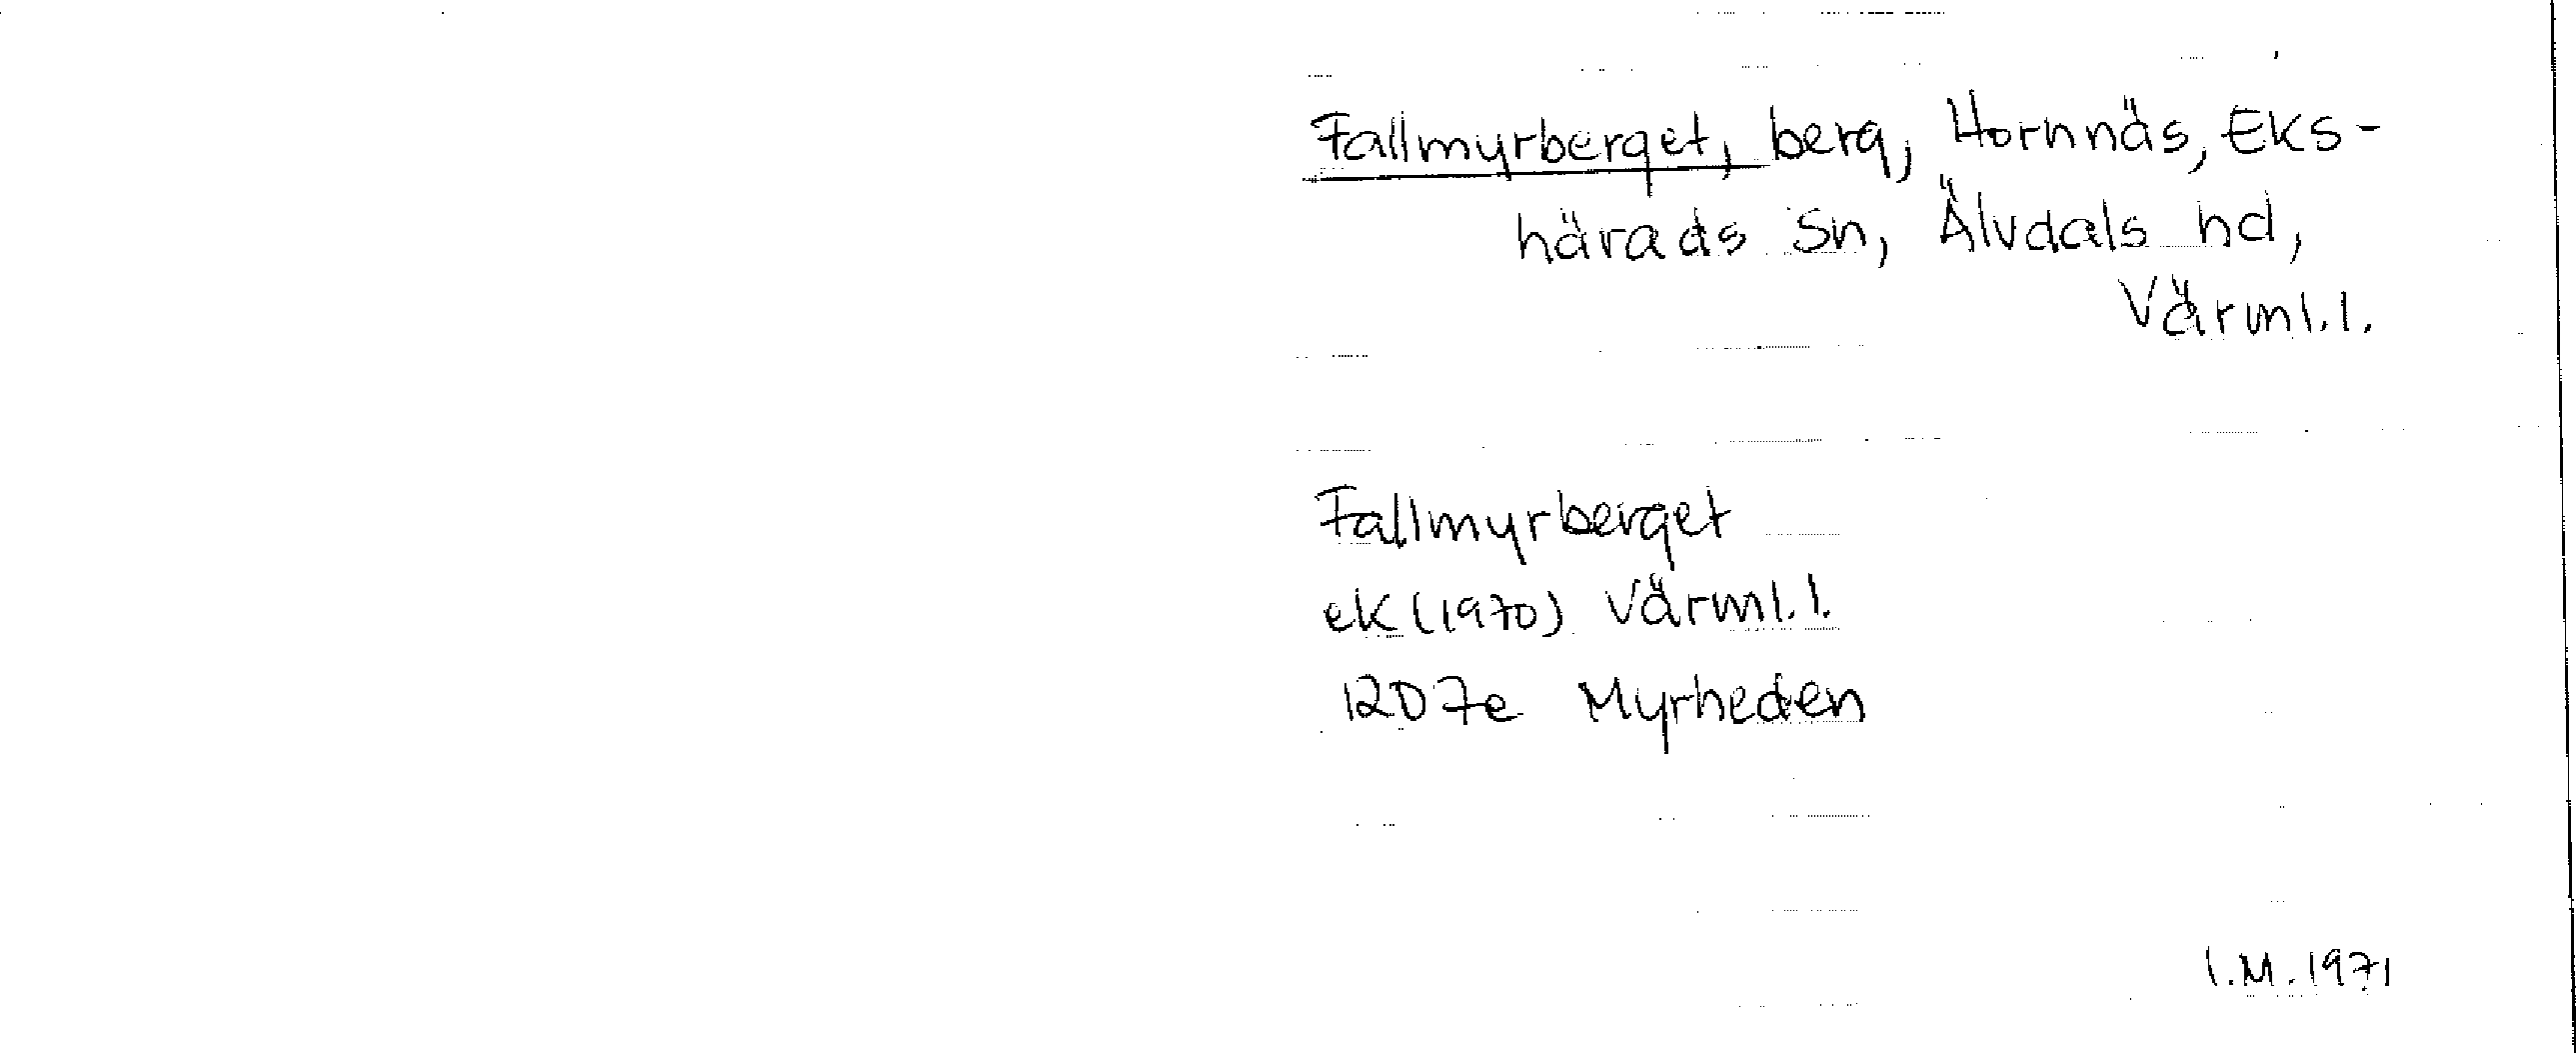 Fallmyrberget, berg, Hornnäs, Eks-
härads Sn, Älvdals hd,
Värml.l.
Fallmyrberget
ek (1970) Värml.l.
12D7e Myrheden
I.M.1971